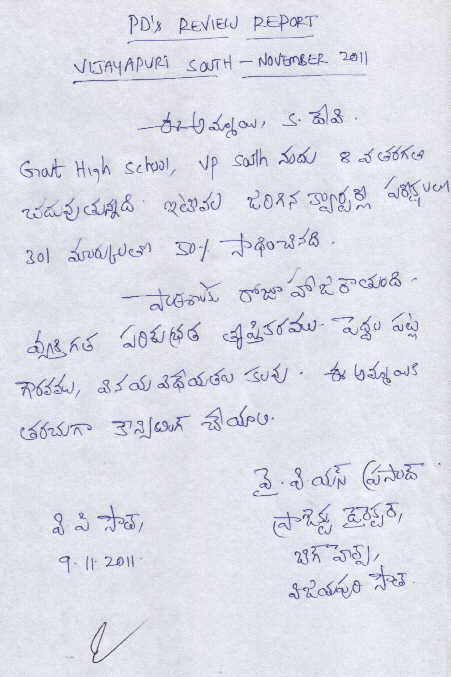 PD's REVIEW REPORT
VIJAYAPURI SOUTH - NOVEMBER 2011
ఈ అమ్మాయి, కె. దేవి.
Govt High School, VP South నందు 8 వ తరగతి
చదువుతున్నది. ఇటీవల జరిగిన క్వార్టర్లీ పరీక్షలలో
301 మార్కులతో 50% సాధించినది.
పాఠశాలకు రోజూ హాజరౌతుంది.
వ్యక్తిగత పరిశుభ్రత తృప్తికరము. పెద్దల పట్ల
గౌరవము, వినయ విధేయతలు కలవు. ఈ అమ్మాయికి
తరచుగా కౌన్సిలింగ్ చేయాలి.
వై. వి యస్ ప్రసాద్
ప్రాజెక్టు డైరెక్టర్,
బిగ్ హెల్ప్,
విజయపురి సౌత్.
వి పి సౌత్,
9.11.2011.